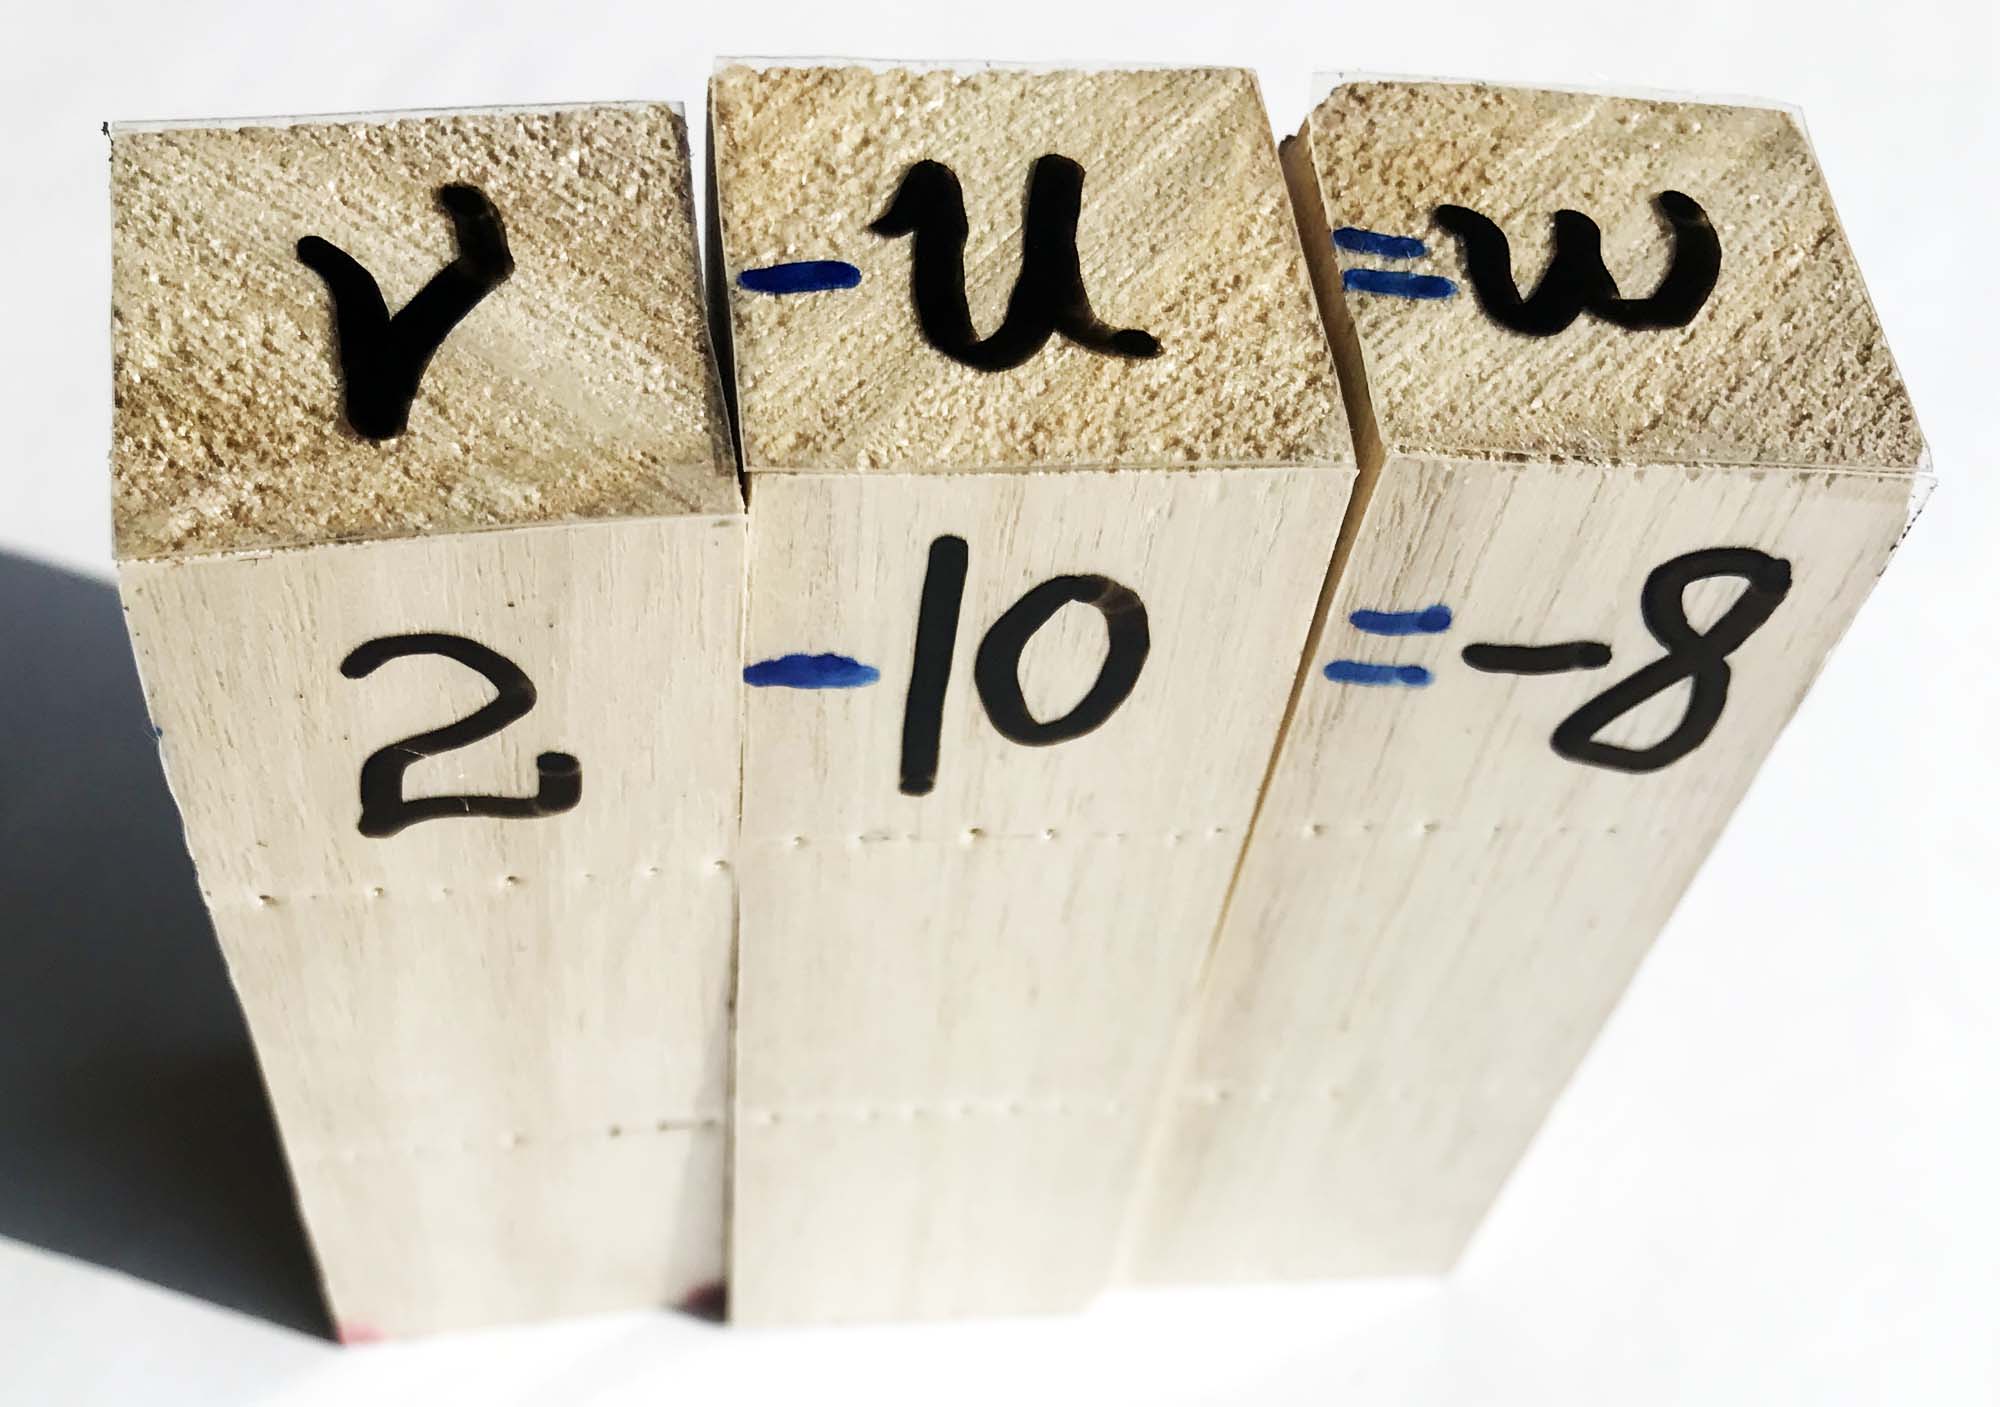 v - u = w
2 - 10 = -8